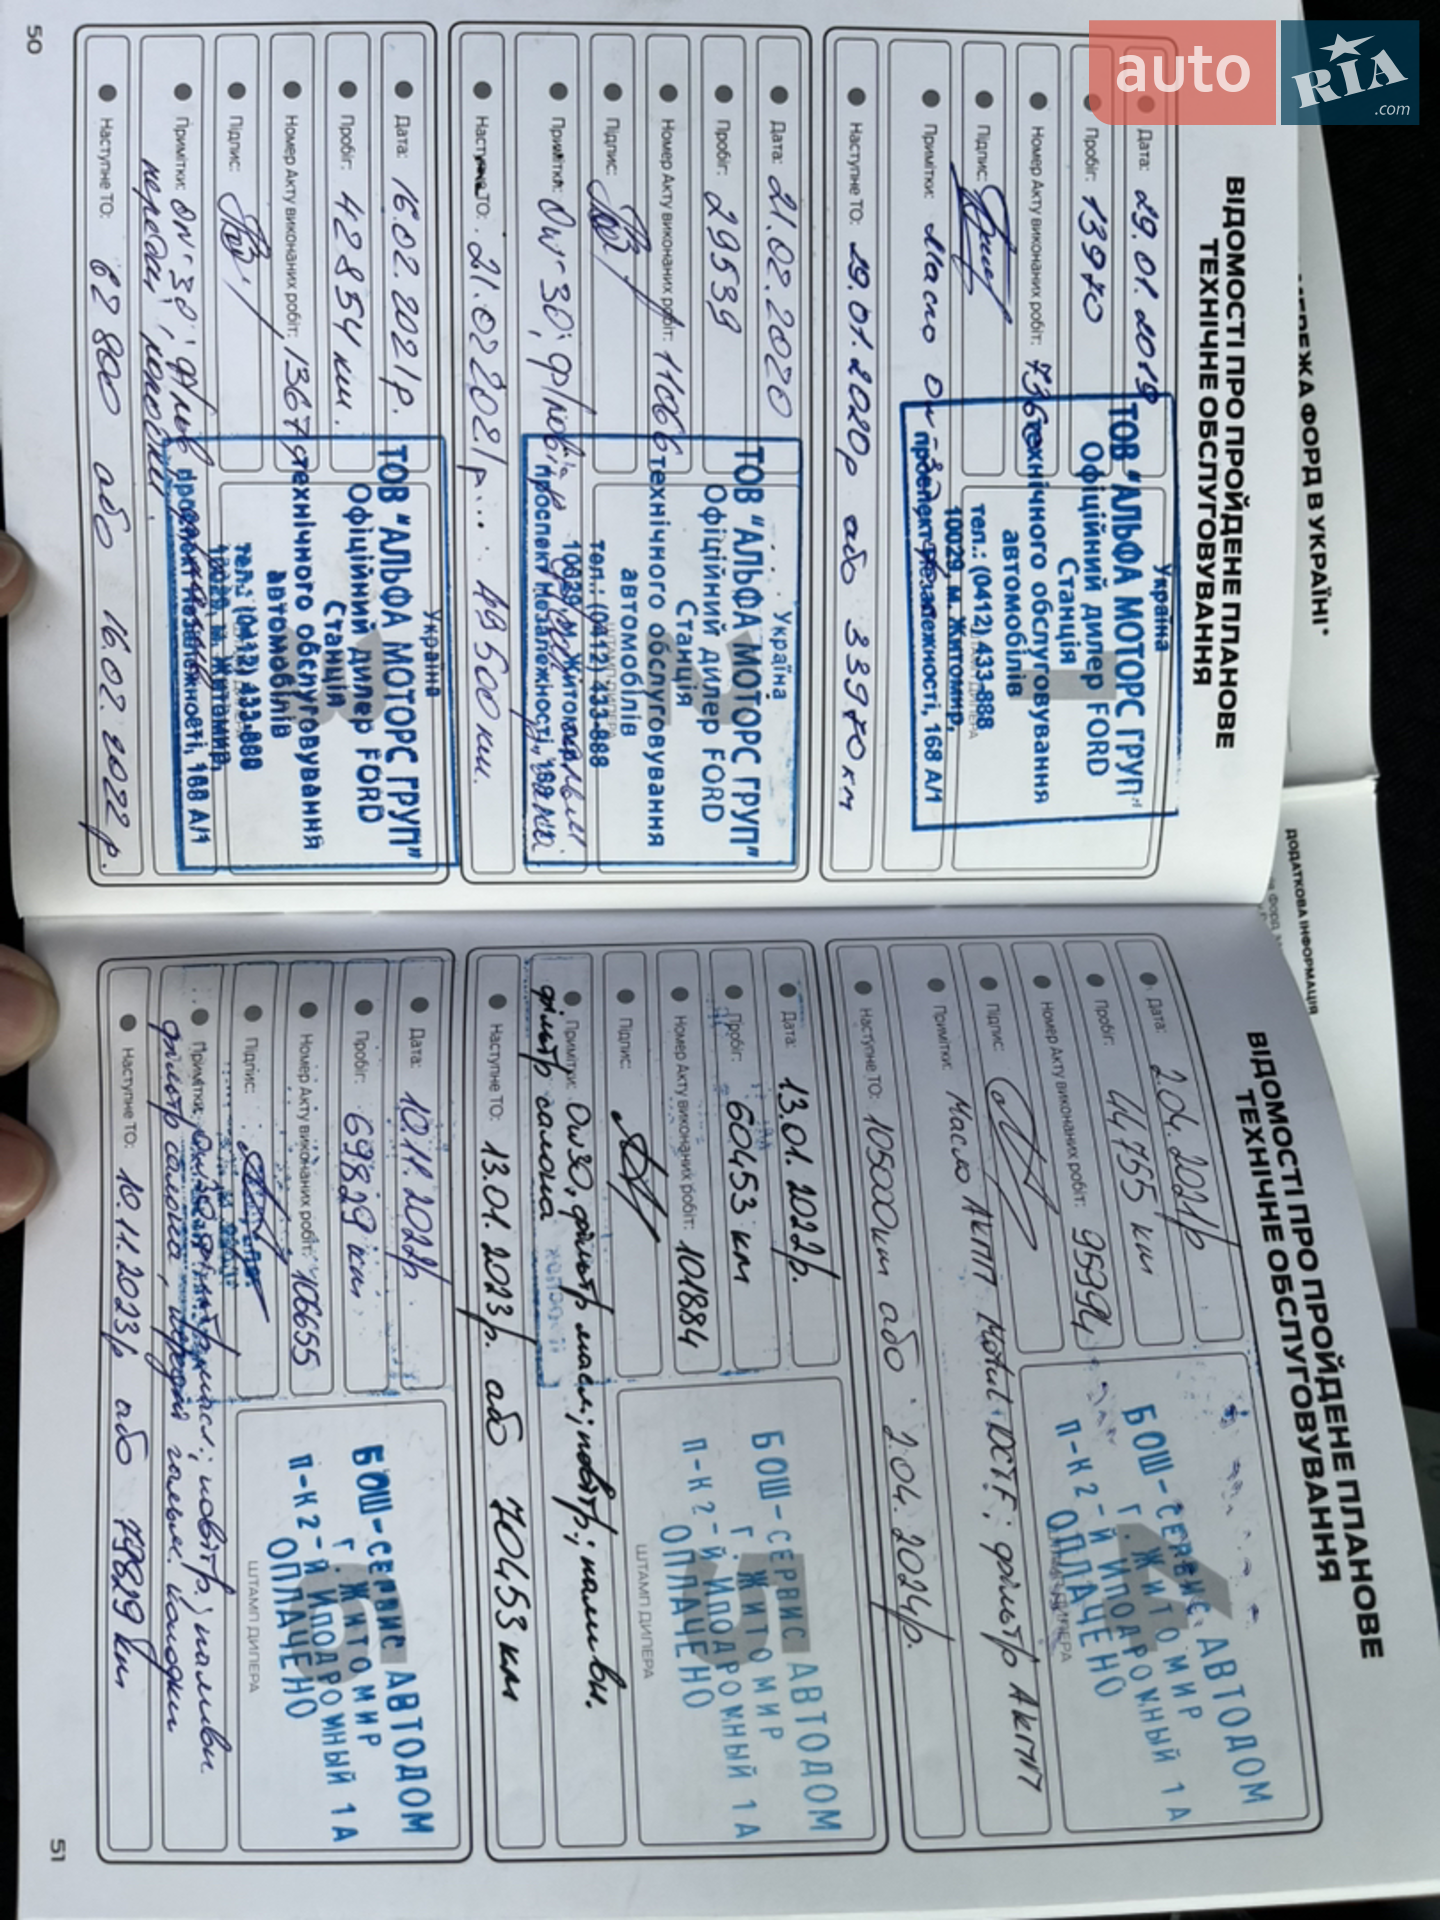 auto
RIA
.com
МЕРЕЖА ФОРД В УКРАЇНІ*
ДОДАТКОВА ІНФОРМАЦІЯ
ВІДОМОСТІ ПРО ПРОЙДЕНЕ ПЛАНОВЕ
ТЕХНІЧНЕ ОБСЛУГОВУВАННЯ
Дата: 29.01.2019
Пробіг: 13970
Номер Акту виконаних робіт: 736
Підпис:
Примітки: Масло
Наступне ТО: 29.01.2020р або 33970 км
Україна
ТОВ "АЛЬФА МОТОРС ГРУП"
Офіційний дилер FORD
Станція
технічного обслуговування
автомобілів
тел.: (0412) 433-888
10029, м. Житомир,
проспект Незалежності, 168 А/1
Дата: 21.02.2020
Пробіг: 29539
Номер Акту виконаних робіт: 11066
Підпис:
Примітки:
Наступне ТО: 21.02.2021р. 49500 км.
Україна
ТОВ "АЛЬФА МОТОРС ГРУП"
Офіційний дилер FORD
Станція
технічного обслуговування
автомобілів
тел.: (0412) 433-888
10029, м. Житомир,
проспект Незалежності, 168 А/1
Дата: 16.02.2021р.
Пробіг: 42854 км.
Номер Акту виконаних робіт: 1367
Підпис:
Примітки:
передні колодки.
Наступне ТО: 62800 або 16.02.2022р.
Україна
ТОВ "АЛЬФА МОТОРС ГРУП"
Офіційний дилер FORD
Станція
технічного обслуговування
автомобілів
тел.: (0412) 433-888
10029, м. Житомир,
проспект Незалежності, 168 А/1
50
ВІДОМОСТІ ПРО ПРОЙДЕНЕ ПЛАНОВЕ
ТЕХНІЧНЕ ОБСЛУГОВУВАННЯ
Дата: 2.04.2021р
Пробіг: 44755 км
Номер Акту виконаних робіт: 95994
Підпис:
Примітки: Масло АКПП Motul DCTF; фільтр АКПП
Наступне ТО: 105000км або 2.04.2024р.
4
БОШ-СЕРВИС АВТОДОМ
Г. ЖИТОМИР
П-К 2-Й ИПОДРОМНЫЙ 1А
ОПЛАЧЕНО
Дата: 13.01.2022р.
Пробіг: 60453 км
Номер Акту виконаних робіт: 101884
Підпис:
Примітки: 0w30, фільтр масл; повітр.;
фільтр салона
Наступне ТО: 13.01.2023р. або 70453 км
5
БОШ-СЕРВИС АВТОДОМ
Г. ЖИТОМИР
П-К 2-Й ИПОДРОМНЫЙ 1А
ОПЛАЧЕНО
ШТАМП ДИЛЕРА
Дата: 10.11.2022р
Пробіг: 69829 км
Номер Акту виконаних робіт: 106655
Підпис:
Примітки:
фільтр салона,
Наступне ТО: 10.11.2023р або 79829 км
6
БОШ-СЕРВИС АВТОДОМ
Г. ЖИТОМИР
П-К 2-Й ИПОДРОМНЫЙ 1А
ОПЛАЧЕНО
ШТАМП ДИЛЕРА
51